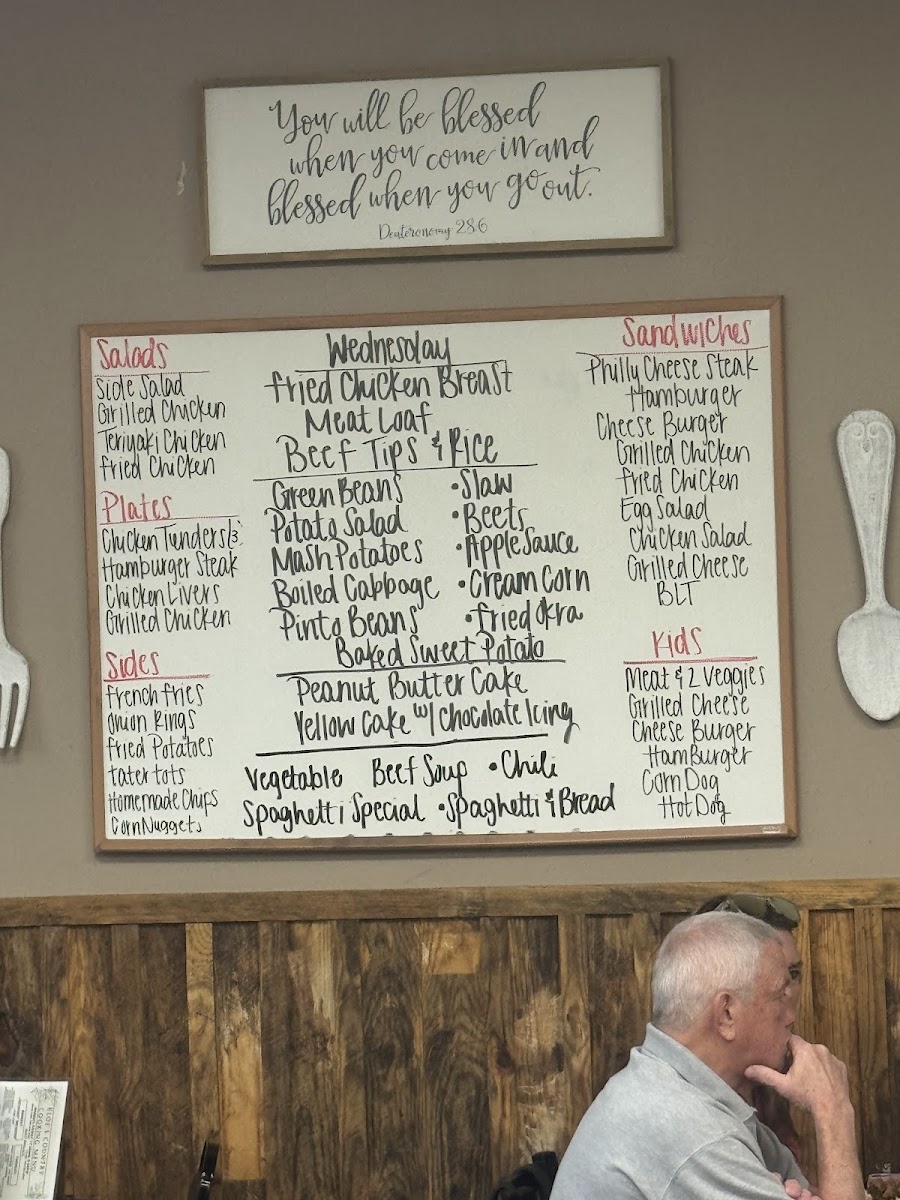 You will be blessed
when you come in and
blessed when you go out.
Deuteronomy 28:6
Salads
Side Salad
Grilled Chicken
Teriyaki Chicken
Fried Chicken
Plates
Chicken Tenders (3)
Hamburger Steak
Chicken Livers
Grilled Chicken
Sides
French Fries
Onion Rings
Fried Potatoes
tater tots
Homemade Chips
Corn Nuggets
Wednesday
Fried Chicken Breast
Meat Loaf
Beef Tips & Rice
Green Beans •Slaw
Potato Salad •Beets
Mash Potatoes •Apple Sauce
Boiled Cabbage •Cream Corn
Pinto Beans •Fried Okra
Baked Sweet Potato
Peanut Butter Cake
Yellow Cake w/ Chocolate Icing
Vegetable Beef Soup •Chili
Spaghetti Special •Spaghetti & Bread
Sandwiches
Philly Cheese Steak
Hamburger
Cheese Burger
Grilled Chicken
Fried Chicken
Egg Salad
Chicken Salad
Grilled Cheese
BLT
Kids
Meat & 2 Veggies
Grilled Cheese
Cheese Burger
HamBurger
Corn Dog
Hot Dog
COUNTRY
COOKING MENU